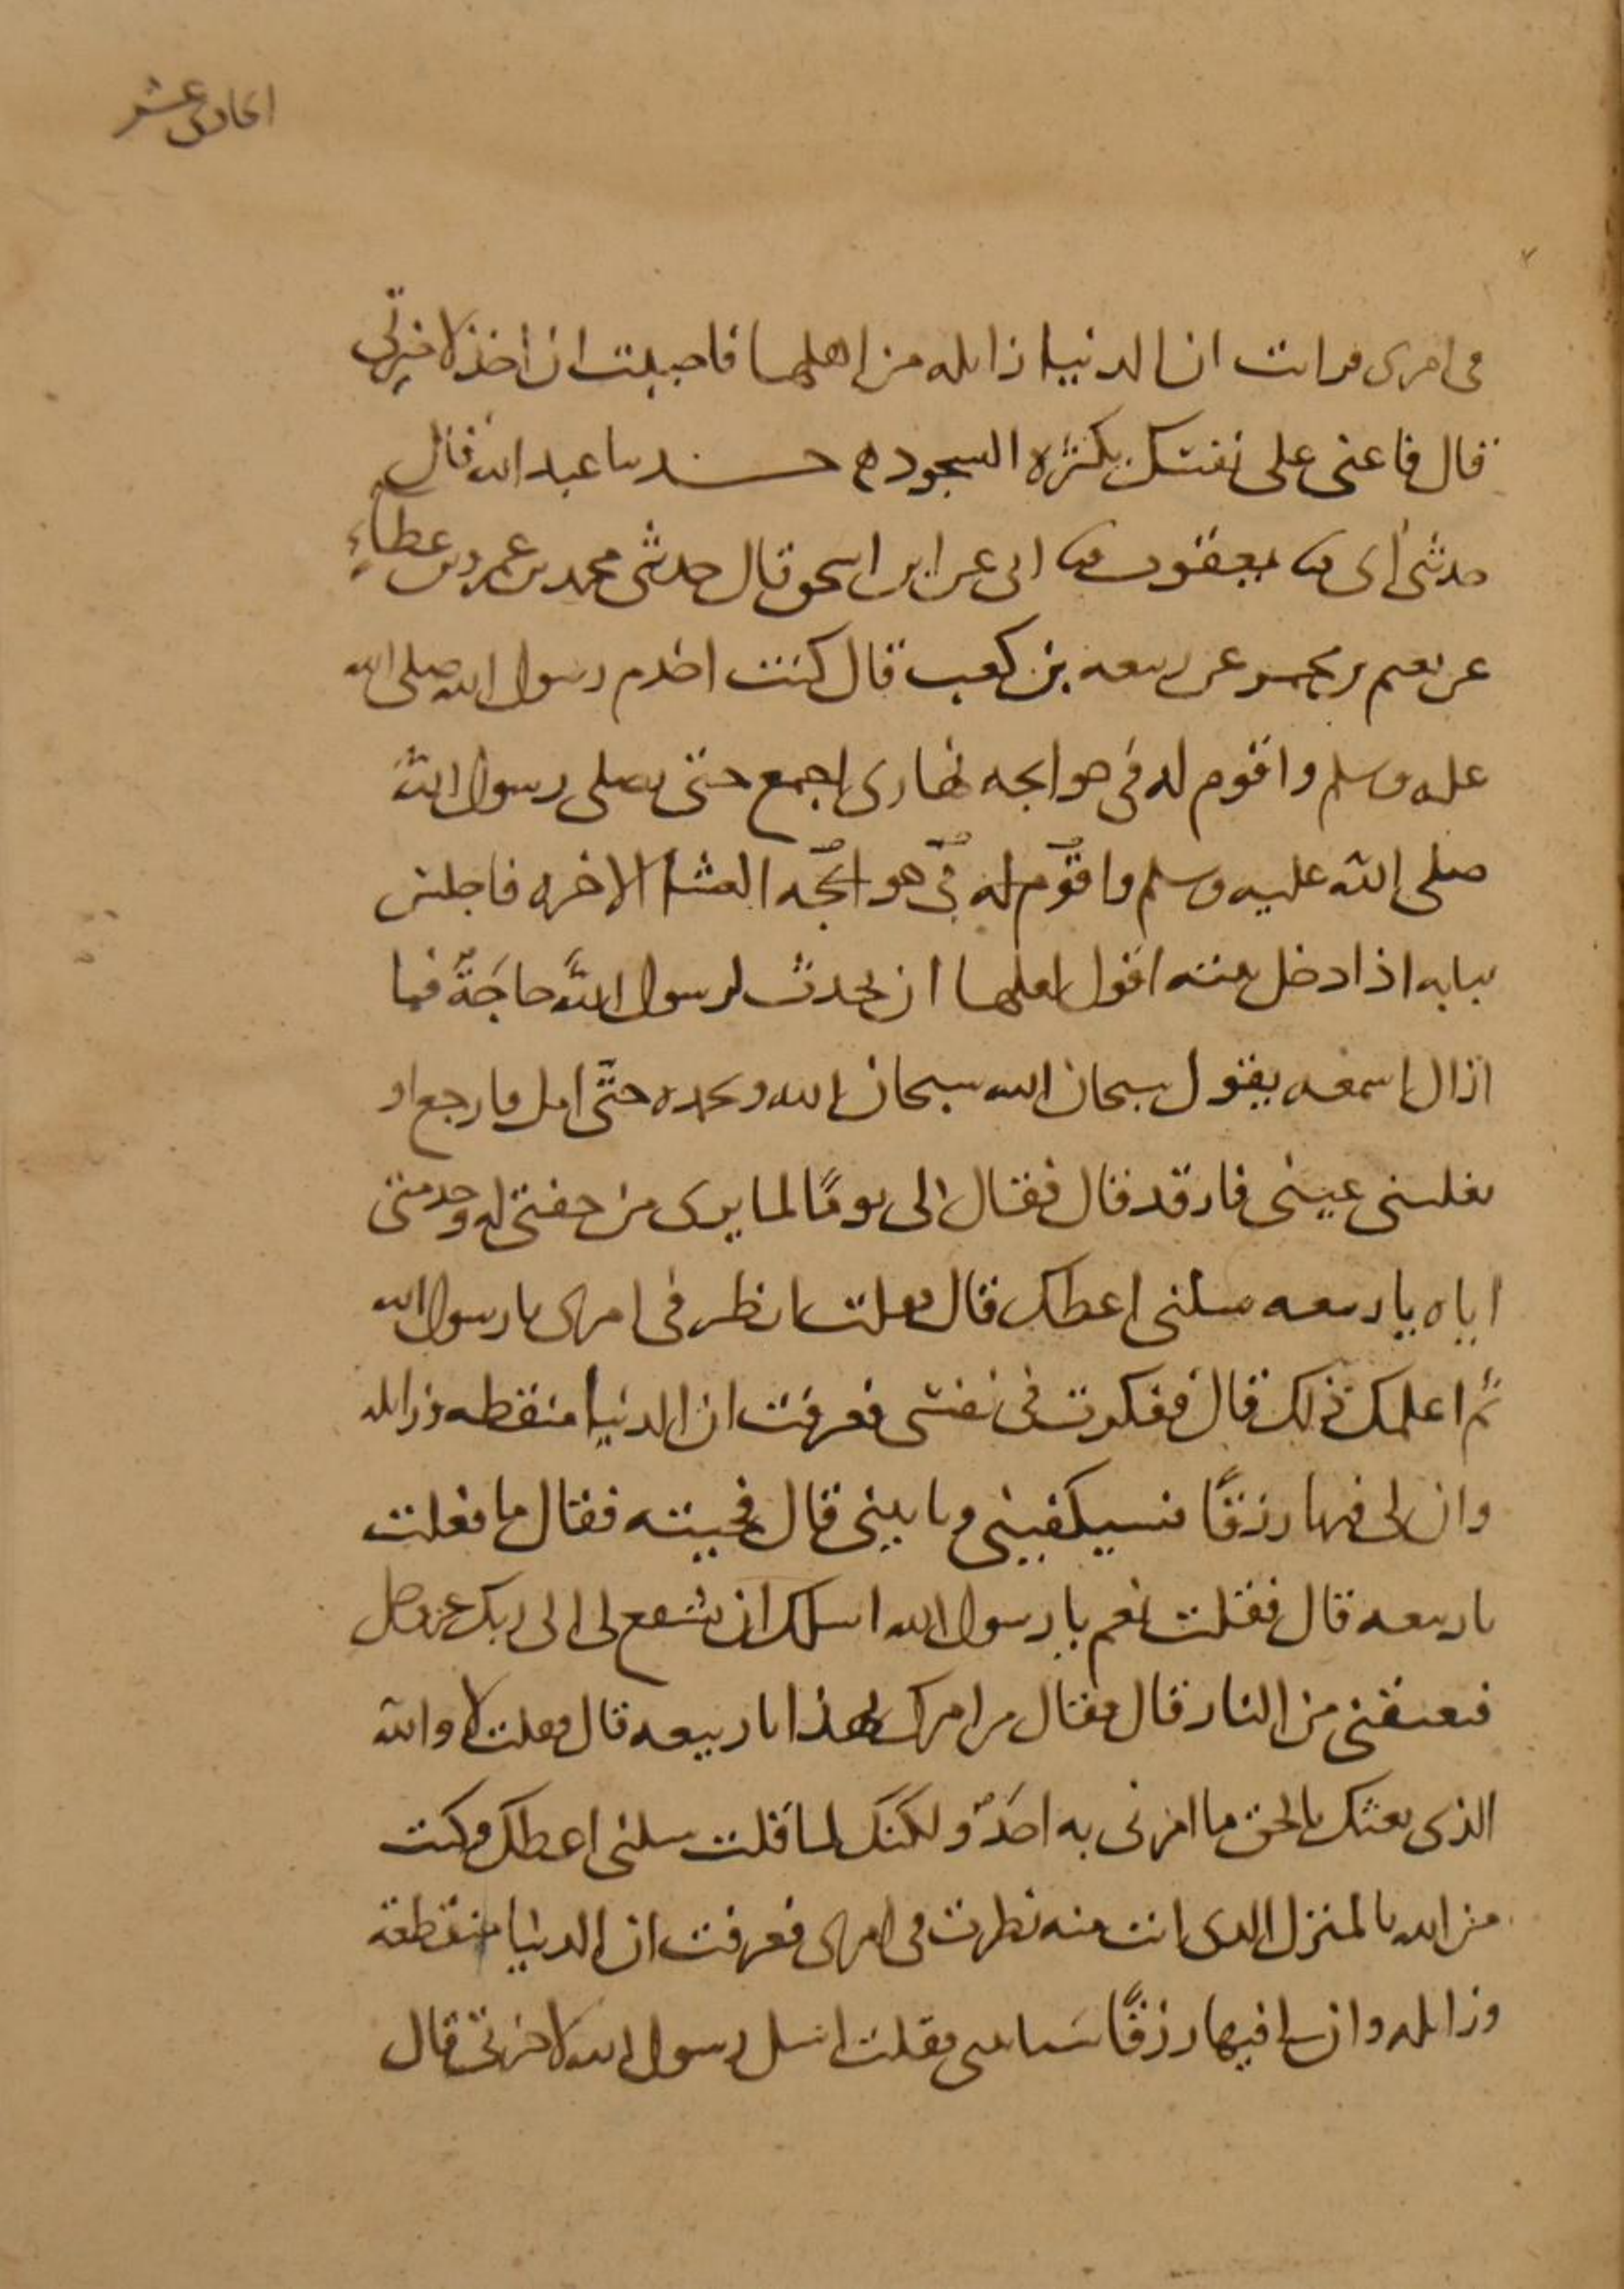 الحادى عشر
فى امرى فرايت ان الدنيا زايله من اهلها فاحببت ان اخذ لاخرتى
قال فاعنى على نفسك بكثره السجود ه حـــدثنا عبد الله قال
حدثنى ابى ثنا يعقوب ثنا ابى عن ابن اسحق قال حدثنى محمد بن عمرو بن عطاءٍ
عن نعيم بن مجمر عن ربيعه بن كعب قال كنت اخدم رسول الله صلى الله
عليه وسلم واقوم له فى حوايجه نهارى اجمع حتى يصلى رسول الله
صلى الله عليه وسلم واقوم له فى حوايجه العشا الاخره فاجلس
ببابه اذا دخل بيته اقول لعلها ان يحدث لرسول الله حاجَةٌ فما
ازال اسمعه يقول سبحان الله سبحان الله وبحمده حتّى امل فارجع او
تغلبنى عينى فارقد قال فقال لى يومًا لما يرى من خفتى له وخدمتى
اياه يا ربيعه سلنى اعطك قال فقلت انظر فى امرى يا رسول الله
ثم اعلمك ذلك قال ففكرت فى نفسى فعرفت ان الدنيا منقطعه زايله
وان لى فيها رزقًا فسيكفينى وياتينى قال فجيته فقال ما فعلت
يا ربيعه قال فقلت نعم يا رسول الله اسلك ان تشفع لى الى ربك عز وجل
فيعتقنى من النار قال فقال من امرك بهذا يا ربيعه قال فقلت لا والله
الذى بعثك بالحق ما امرنى به احَدٌ ولكنك لما قلت سلنى اعطك وكنت
من الله بالمنزل الذى انت منه نظرت فى امرى فعرفت ان الدنيا منقطعة
وزايله وان لى فيها رزقًا سياتينى فقلت اسل رسول الله لاخرتى قال